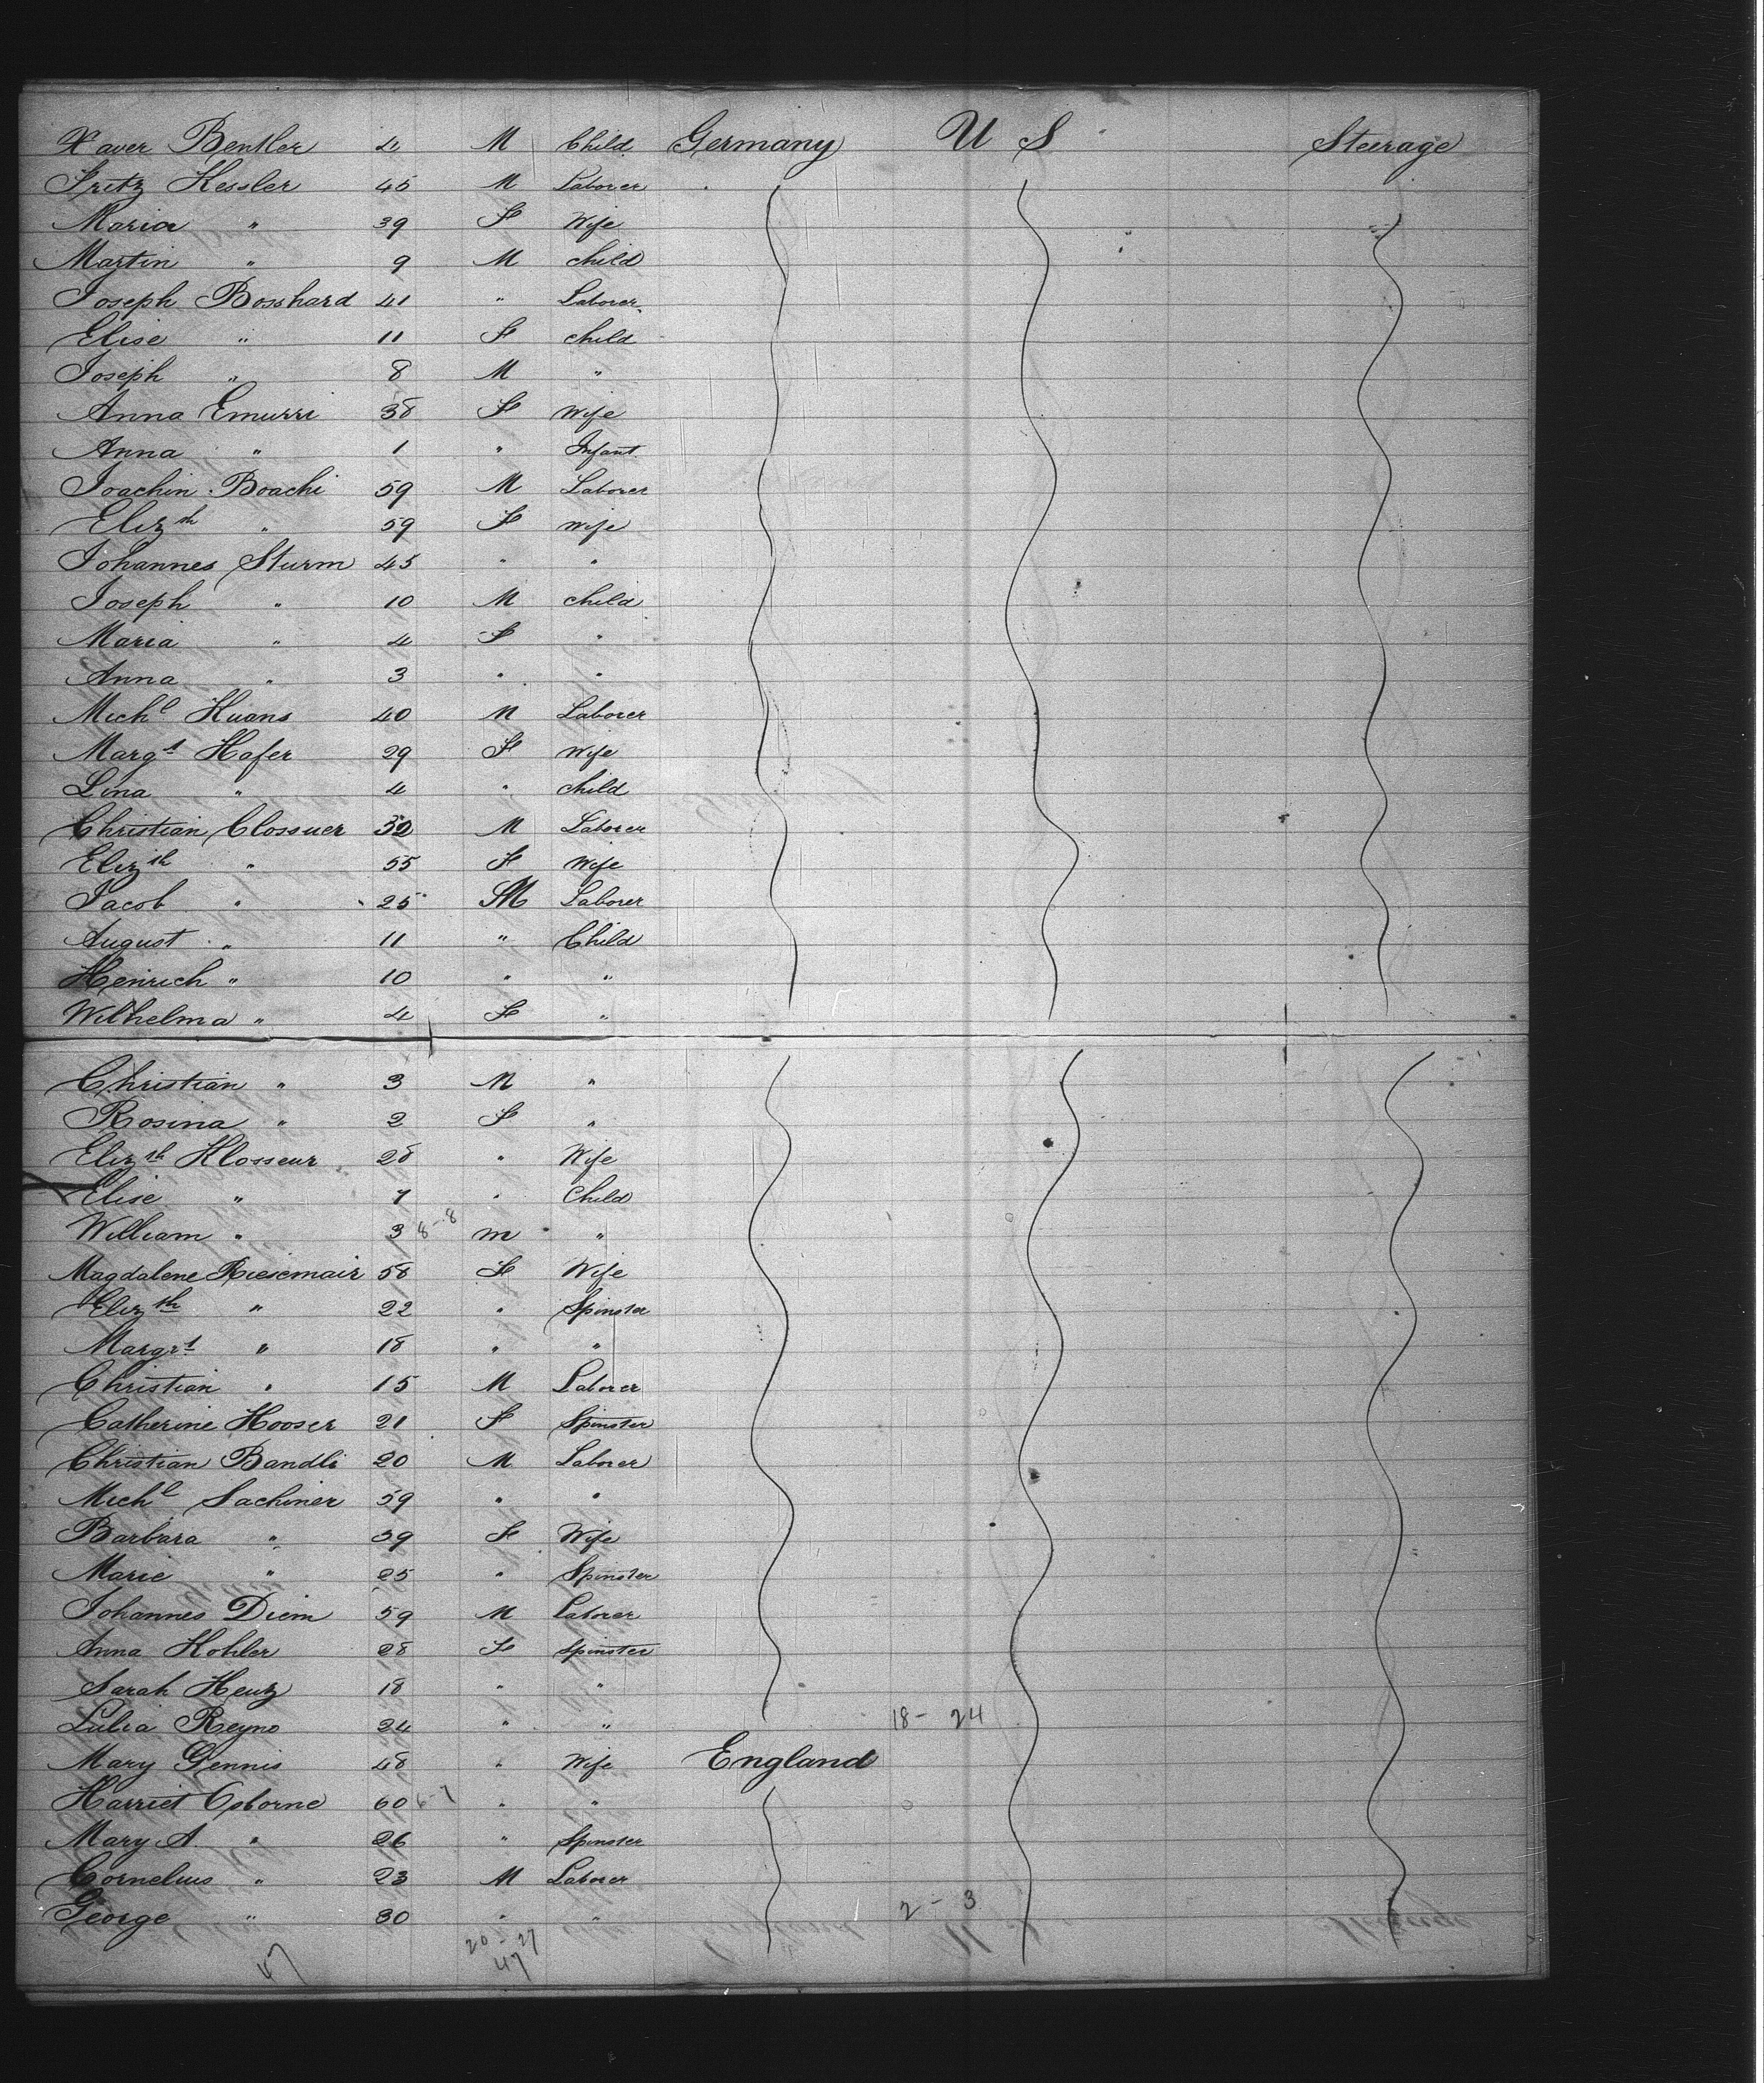 Xaver Bentler 4 M Child Germany U S Steerage
Fritz Kessler 45 M Laborer
Maria " 39 F Wife
Martin " 9 M child
Joseph Bosshard 41 " Laborer
Elise " 11 F child
Joseph " 8 M "
Anna Emurri 38 F Wife
Anna " 1 " Infant
Joachin Boachi 59 M Laborer
Elizth " 59 F wife
Johannes Sturm 45 " "
Joseph " 10 M child
Maria " 4 F "
Anna " 3 " "
Michl Kuans 40 M Laborer
Margt Hafer 29 F Wife
Lina " 4 " child
Christian Clossuer 52 M Laborer
Elizth " 55 F Wife
Jacob " 25 M Laborer
August " 11 " Child
Heinrich " 10 " "
Wilhelma " 4 F "
Christian " 3 M "
Rosina " 2 F "
Elizth Klosseur 28 " Wife
Elise " 7 " Child
William " 3 8-8 m "
Magdalene Riesemair 58 F Wife
Elizth " 22 " Spinster
Margrt " 18 " "
Christian " 15 M Laborer
Catherine Hooser 21 F Spinster
Christian Bandli 20 M Laborer
Michl Sachiner 59 " "
Barbara " 59 F Wife
Marie " 25 " Spinster
Johannes Diem 59 M Laborer
Anna Kohler 28 F Spinster
Sarah Heuz 18 " "
Lulia Reyno 24 " " 18- 24
Mary Gennis 48 " Wife England
Harriet Osborne 60 6-7 " "
Mary A. " 26 " Spinster
Cornelius " 23 M Laborer
George " 30 " " 2 - 3
20 - 27
47 47